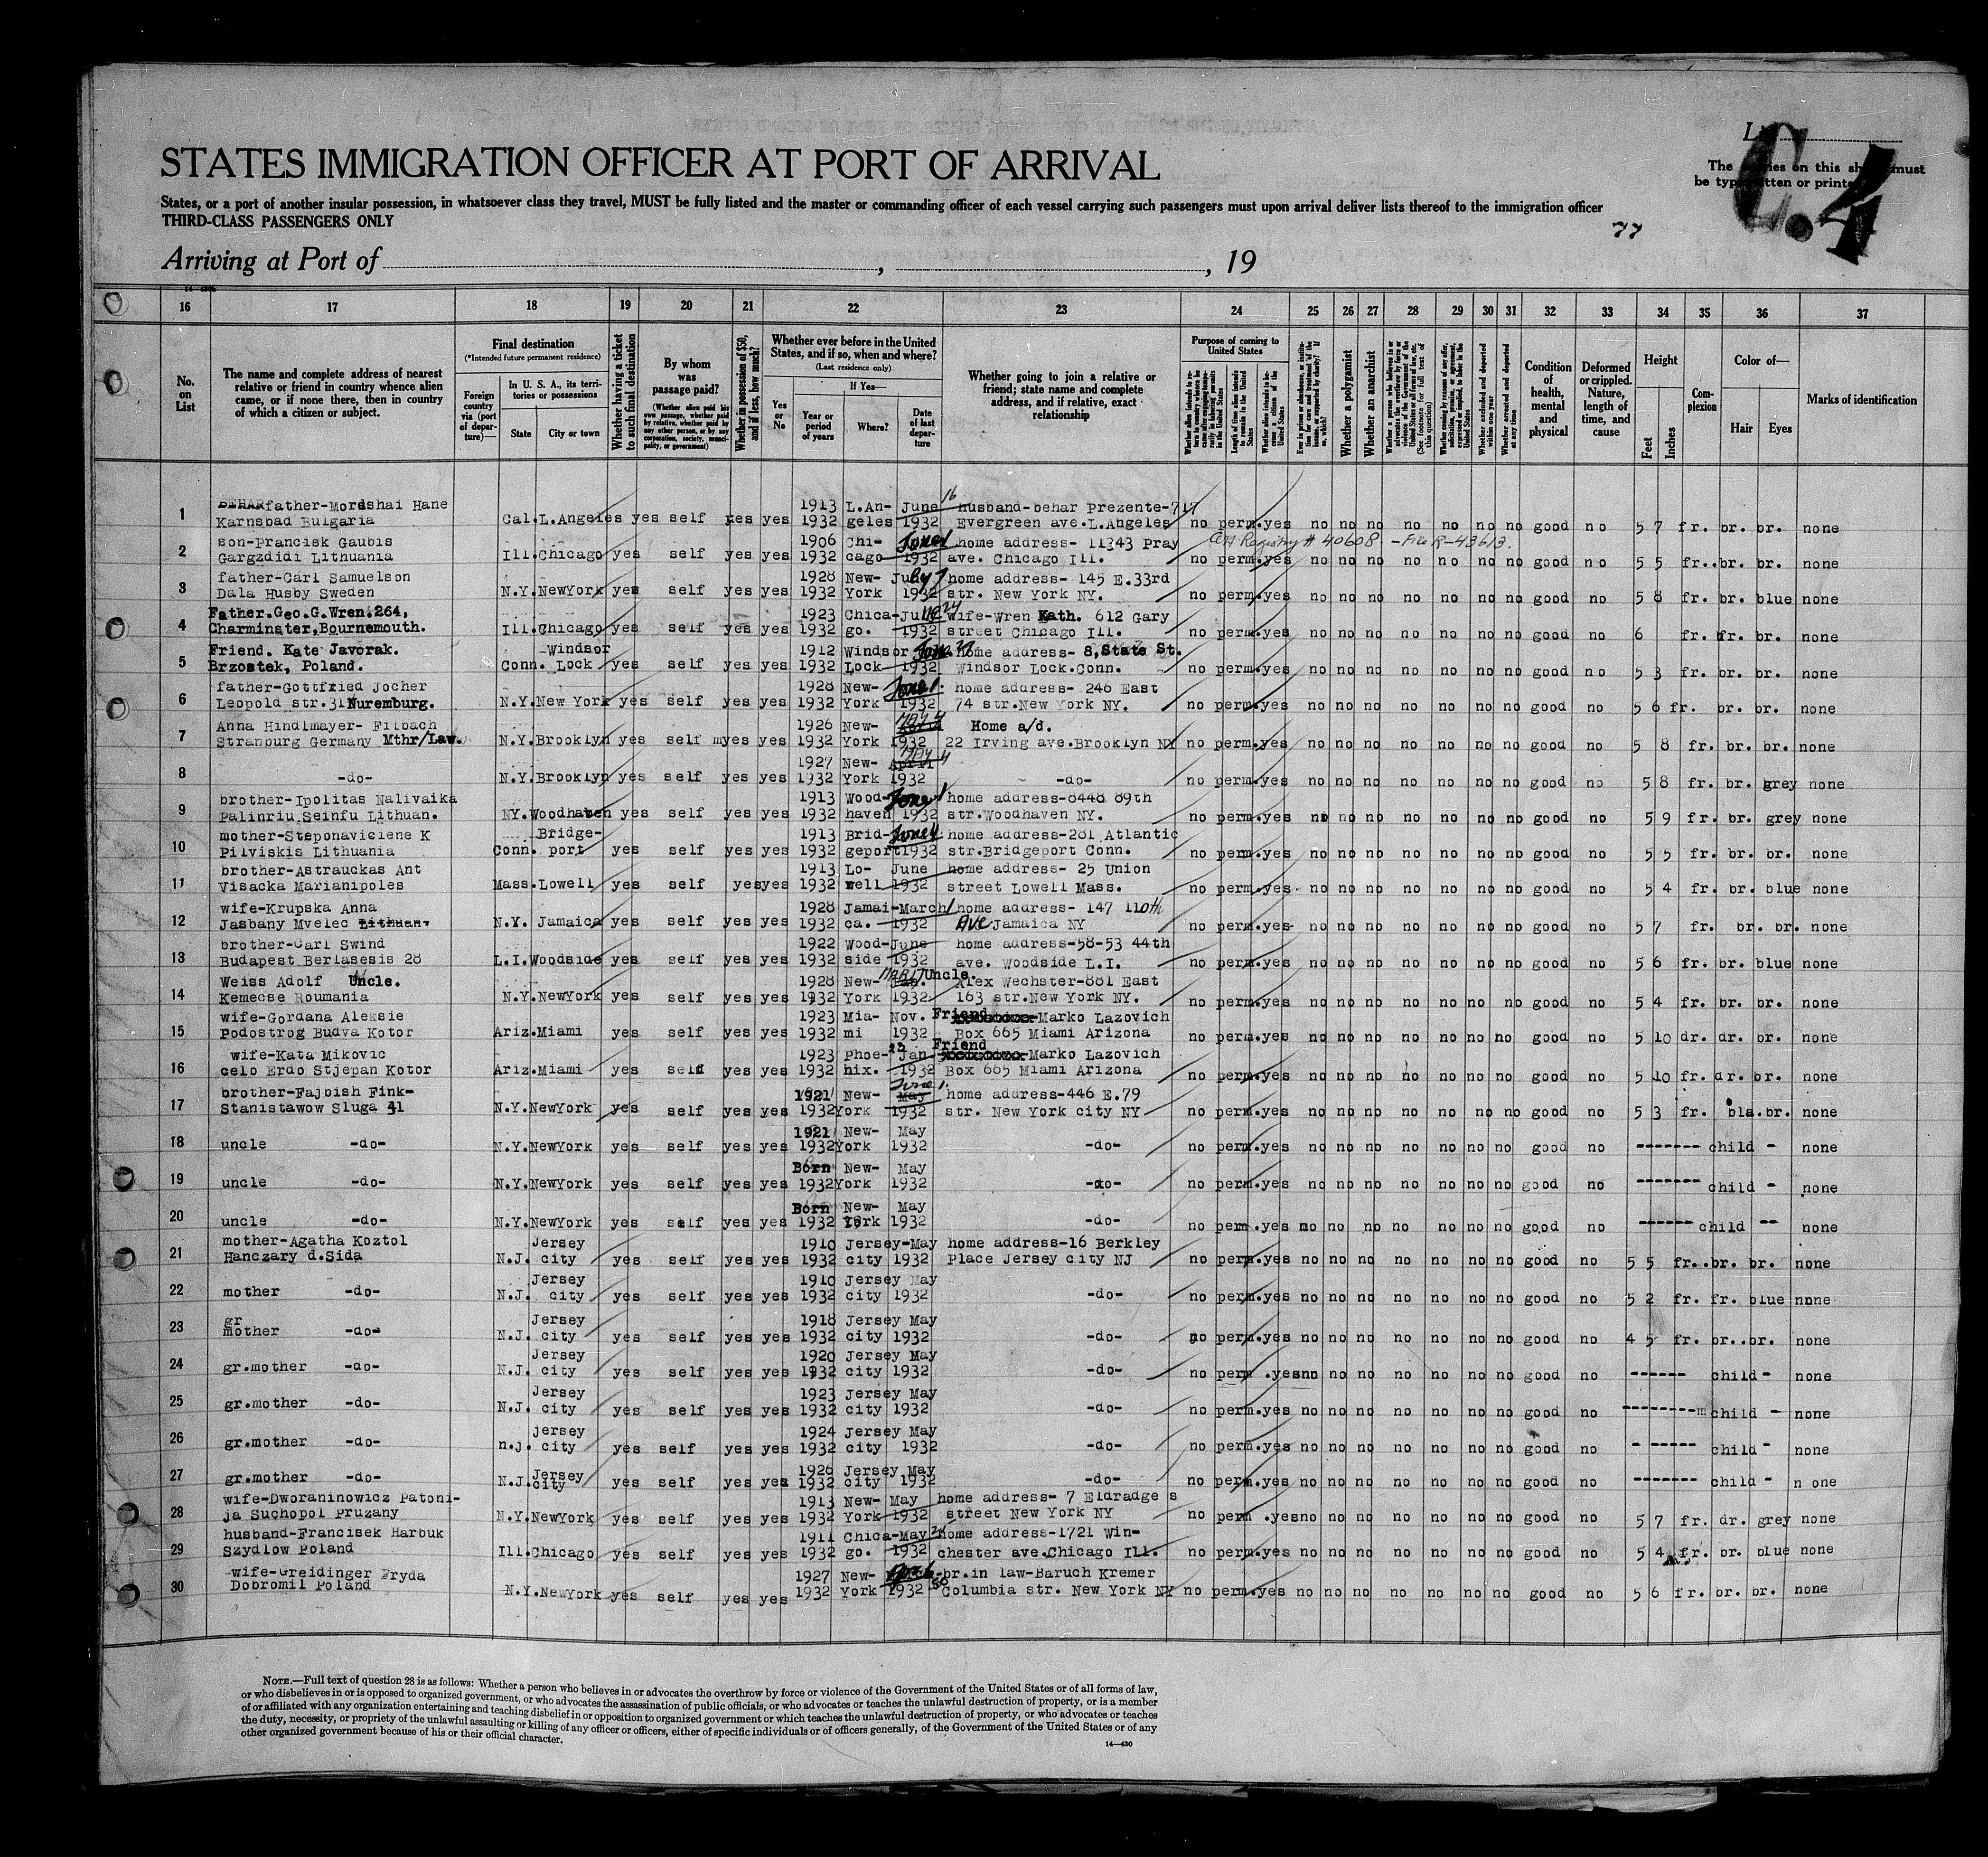 STATES IMMIGRATION OFFICER AT PORT OF ARRIVAL
The entries on this sheet must
be typewritten or printed
C.4
States, or a port of another insular possession, in whatsoever class they travel, MUST be fully listed and the master or commanding officer of each vessel carrying such passengers must upon arrival deliver lists thereof to the immigration officer
THIRD-CLASS PASSENGERS ONLY
77
Arriving at Port of , , 19
16 17 18 19 20 21 22 23 24 25 26 27 28 29 30 31 32 33 34 35 36 37
No. on List
The name and complete address of nearest relative or friend in country whence alien came, or if none there, then in country of which a citizen or subject.
Final destination
(*Intended future permanent residence)
Foreign country via (port of departure)—
In U. S. A., its territories or possessions
State City or town
Whether having a ticket to such final destination
By whom was passage paid?
(Whether alien paid his own passage, whether paid by relative, whether paid by any other person, or by any corporation, society, municipality, or government)
Whether in possession of $50, and if less, how much?
Whether ever before in the United States, and if so, when and where?
(Last residence only)
Yes or No
If Yes—
Year or period of years
Where?
Date of last departure
Whether going to join a relative or friend; state name and complete address, and if relative, exact relationship
Purpose of coming to United States
Length of time alien intends to remain in the United States
Whether alien intends to become a citizen of the United States
Whether a polygamist
Whether an anarchist
Whether excluded and deported within one year
Whether arrested and deported at any time
Condition of health, mental and physical
Deformed or crippled. Nature, length of time, and cause
Height
Feet Inches
Complexion
Color of—
Hair Eyes
Marks of identification
1 BEHAR father-Mordshai Hane 1913 L.An- June 16 husband-behar Prezente-717
Karnsbad Bulgaria Cal. L.Angeles yes self yes yes 1932 geles 1932 Evergreen ave.L.Angeles no perm.yes no no no no no no no good no 5 7 fr. br. br. none
2 son-Prancisk Gaubis 1906 Chi- June 1 home address- 11343 Pray Registry # 40608 - File R-43613.
Gargzdidi Lithuania Ill. Chicago yes self yes yes 1932 cago 1932 ave. Chicago Ill. no perm.yes no no no no no no no good no 5 5 fr. br. br. none
3 father-Carl Samuelson 1928 New- July 7 home address- 145 E.33rd
Dala Husby Sweden N.Y. NewYork yes self yes yes 1932 York 1932 str. New York NY. no perm.yes no no no no no no no good no 5 8 fr. br. blue none
4 Father.Geo.G.Wren.264, 1923 Chica- July 24 wife-Wren Kath. 612 Gary
Charminster,Bournemouth. Ill. Chicago yes self yes yes 1932 go. 1932 street Chicago Ill. no perm.yes no no no no no no no good no 6 fr. fr. br. none
5 Friend. Kate Javorak. -Windsor 1912 Windsor June 27 home address- 8,State St.
Brzostek, Poland. Conn. Lock yes self yes yes 1932 Lock 1932 Windsor Lock.Conn. no perm.yes no no no no no no no good no 5 3 fr. br. br. none
6 father-Gottfried Jocher 1928 New- June 1. home address- 246 East
Leopold str.31 Nuremburg. N.Y. New York yes self yes yes 1932 York 1932 74 str.New York NY. no perm.yes no no no no no no no good no 5 6 fr. br. br. none
7 Anna Hindlmayer- Filbach 1926 New- May 4 Home a/d.
Stranburg Germany Mthr/Law. N.Y. Brooklyn yes self myes yes 1932 York 1932 22 Irving ave.Brooklyn NY no perm.yes no no no no no no no good no 5 8 fr. br. br. none
8 1927 New- April May 4
-do- N.Y. Brooklyn yes self yes yes 1932 York 1932 -do- no perm.yes no no no no no no no good no 5 8 fr. br. grey none
9 brother-Ipolitas Nalivaika 1913 Wood- June 1 home address-8448 89th
Palinriu Seinfu Lithuan. NY. Woodhaven yes self yes yes 1932 haven 1932 str.Woodhaven NY. no perm.yes no no no no no no no good no 5 9 fr. br. grey none
10 mother-Steponaviciene K Bridge- 1913 Brid- June 4 home address-281 Atlantic
Pilviskis Lithuania Conn. port yes self yes yes 1932 geport 1932 str.Bridgeport Conn. no perm.yes no no no no no no no good no 5 5 fr. br. br. none
11 brother-Astrauckas Ant 1913 Lo- June home address- 25 Union
Visacka Marianipoles Mass. Lowell yes self yes yes 1932 well 1932 street Lowell Mass. no perm.yes no no no no no no no good no 5 4 fr. br. blue none
12 wife-Krupska Anna 1928 Jamai- March 1 home address- 147 110th
Jasbany Mvelec Lithuan. N.Y. Jamaica yes self yes yes 1932 ca. 1932 Ave Jamaica NY no perm.yes no no no no no no no good no 5 7 fr. br. br. none
13 brother-Carl Swind 1922 Wood- June home address-58-53 44th
Budapest Berlasesis 28 L.I. Woodside yes self yes yes 1932 side 1932 ave. Woodside L.I. no perm.yes no no no no no no no good no 5 6 fr. br. blue none
14 Weiss Adolf Uncle. 1928 New- Uncle. Alex Wechster-881 East
Kemecse Roumania N.Y. NewYork yes self yes yes 1932 York 1932 163 str.New York NY. no perm.yes no no no no no no no good no 5 4 fr. br. br. none
15 wife-Gordana Aleksie 1923 Mia- Nov. Friend Marko Lazovich
Podostrog Budva Kotor Ariz. Miami yes self yes yes 1932 mi 1932 Box 665 Miami Arizona no perm.yes no no no no no no no good no 5 10 dr. dr. br. none
16 wife-Kata Mikovic 1923 Phoe- 23 Jan Friend Marko Lazovich
celo Erdo Stjepan Kotor Ariz. Miami yes self yes yes 1932 hix. 1932 Box 665 Miami Arizona no perm.yes no no no no no no no good no 5 10 fr. dr. br. none
17 brother-Fajbish Fink- 1921 New- May June 1. home address-446 E.79
Stanistawow Sluga 41 N.Y. NewYork yes self yes yes 1932 York 1932 str. New York city NY no perm.yes no no no no no no no good no 5 3 fr. bla. br. none
18 1921 New- May
uncle -do- N.Y. NewYork yes self yes yes 1932 York 1932 -do- no perm.yes no no no no no no no good no ------- child - none
19 Born New- May
uncle -do- N.Y. NewYork yes self yes yes 1932 York 1932 -do- no perm.yes no no no no no no no good no ------- child - none
20 Born New- May
uncle -do- N.Y. NewYork yes self yes yes 1932 York 1932 -do- no perm.yes no no no no no no no good no ------ child -- none
21 mother-Agatha Koztol Jersey 1910 Jersey-May home address-16 Berkley
Hanczary d.Sida N.J. city yes self yes yes 1932 city 1932 Place Jersey city NJ no perm.yes no no no no no no no good no 5 5 fr. br. br. none
22 Jersey 1910 Jersey May
mother -do- N.J. city yes self yes yes 1932 city 1932 -do- no perm.yes no no no no no no no good no 5 2 fr. fr. blue none
23 gr Jersey 1918 Jersey May
mother -do- N.J. city yes self yes yes 1932 city 1932 -do- no perm.yes no no no no no no no good no 4 5 fr. br. br. none
24 Jersey 1920 Jersey May
gr.mother -do- N.J. city yes self yes yes 1932 city 1932 -do- no perm .yes no no no no no no no good no ------ child - none
25 Jersey 1923 Jersey May
gr.mother -do- N.J. city yes self yes yes 1932 city 1932 -do- no perm.yes no no no no no no no good no --------m child - none
26 jersey 1924 Jersey May
gr.mother -do- n.j. city yes self yes yes 1932 city 1932 -do- no perm.yes no no no no no no no good no - ----- child - none
27 Jersey 1926 Jersey May
gr.mother -do- N.J. city yes self yes yes 1932 city 1932 -do- no perm.yes no no no no no no no good no ------- child - n one
28 wife-Dworaninowicz Patoni- 1913 New- May home address- 7 Eldradge s
ja Suchopol Pruzany N.Y. NewYork yes self yes yes 1932 York 1932 street New York NY no perm .yes no no no no no no no good no 5 7 fr. dr. grey none
29 husband-Francisek Harbuk 1911 Chica- May home address-1721 Win-
Szydlow Poland Ill. Chicago yes self yes yes 1932 go. 1932 chester ave.Chicago Ill. no perm.yes no no no no no no no good no 5 4 fr. br. blue none
30 wife-Greidinger Fryda 1927 New- br.in law-Baruch Kremer
Dobromil Poland N.Y. NewYork yes self yes yes 1932 York 1932 60 Columbia str. New York NY no perm.yes no no no no no no no good no 5 6 fr. br. br. none
NOTE.—Full text of question 28 is as follows: Whether a person who believes in or advocates the overthrow by force or violence of the Government of the United States or of all forms of law,
or who disbelieves in or is opposed to organized government, or who advocates the assassination of public officials, or who advocates or teaches the unlawful destruction of property, or is a member
of or affiliated with any organization entertaining and teaching disbelief in or opposition to organized government or which teaches the unlawful destruction of property, or who advocates or teaches
the duty, necessity, or propriety of the unlawful assaulting or killing of any officer or officers, either of specific individuals or of officers generally, of the Government of the United States or of any
other organized government because of his or their official character.
14—430